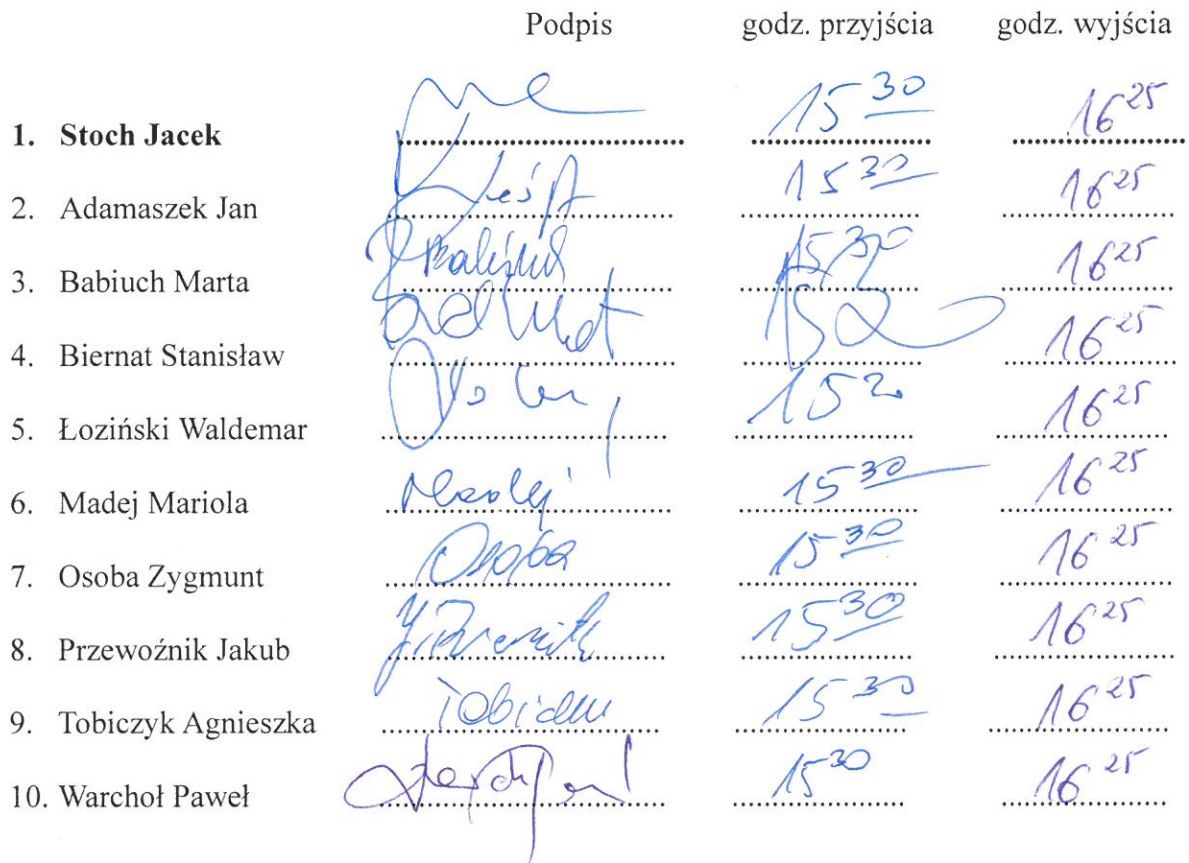 Podpis godz. przyjścia godz. wyjścia
1. Stoch Jacek 15 30 16 25
2. Adamaszek Jan 15 30 16 25
3. Babiuch Marta 15 30 16 25
4. Biernat Stanisław 16 25
5. Łoziński Waldemar 16 25
6. Madej Mariola Madej 15 30 16 25
7. Osoba Zygmunt Osoba 15 30 16 25
8. Przewoźnik Jakub 15 30 16 25
9. Tobiczyk Agnieszka 15 30 16 25
10. Warchoł Paweł 15 30 16 25